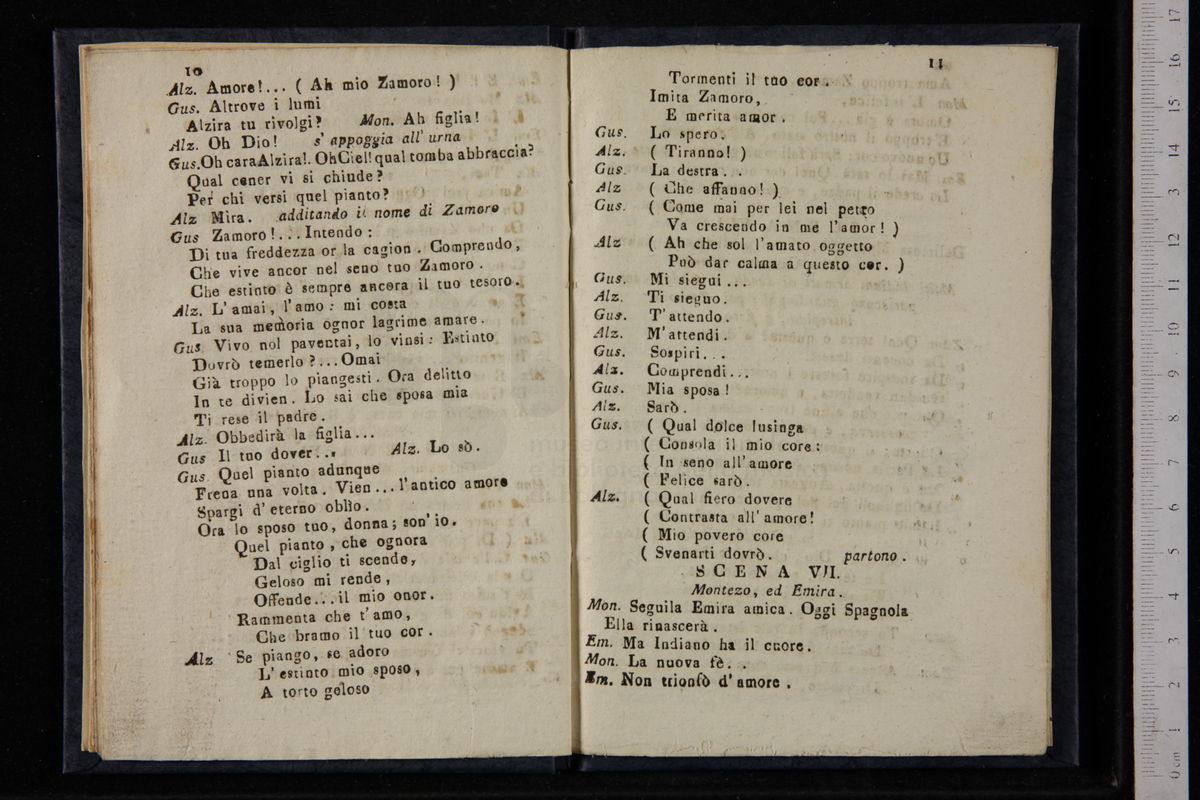 10
Alz. Amore!... ( Ah mio Zamoro! )
Gus. Altrove i lumi
Alzira tu rivolgi? Mon. Ah figlia!
Alz. Oh Dio! s' appoggia all' urna
Gus. Oh cara Alzira!. Oh Ciel! qual tomba abbraccia?
Qual cener vi si chiude?
Per chi versi quel pianto?
Alz Mira. additando il nome di Zamoro
Gus Zamoro!... Intendo:
Di tua freddezza or la cagion. Comprendo,
Che vive ancor nel seno tuo Zamoro.
Che estinto è sempre ancora il tuo tesoro.
Alz. L' amai, l'amo: mi costa
La sua memoria ognor lagrime amare.
Gus Vivo nol paventai, lo vinsi: Estinto
Dovrò temerlo?... Omai
Già troppo lo piangesti. Ora delitto
In te divien. Lo sai che sposa mia
Ti rese il padre.
Alz. Obbedirà la figlia...
Gus Il tuo dover... Alz. Lo sò.
Gus. Quel pianto adunque
Frena una volta. Vien... l'antico amore
Spargi d' eterno oblio.
Ora lo sposo tuo, donna; son' io.
Quel pianto, che ognora
Dal ciglio ti scende,
Geloso mi rende,
Offende... il mio onor.
Rammenta che t'amo,
Che bramo il tuo cor.
Alz Se piango, se adoro
L' estinto mio sposo,
A torto geloso
11
Tormenti il tuo cor.
Imita Zamoro,
E merita amor.
Gus. Lo spero.
Alz. ( Tiranno! )
Gus. La destra . .
Alz ( Che affanno! )
Gus. ( Come mai per lei nel petto
Va crescendo in me l'amor! )
Alz ( Ah che sol l'amato oggetto
Può dar calma a questo cor. )
Gus. Mi siegui...
Alz. Ti sieguo.
Gus. T'attendo.
Alz. M'attendi.
Gus. Sospiri...
Alz. Comprendi...
Gus. Mia sposa!
Alz. Sarò.
Gus. ( Qual dolce lusinga
( Consola il mio core:
( In seno all'amore
( Felice sarò.
Alz. ( Qual fiero dovere
( Contrasta all'amore!
( Mio povero core
( Svenarti dovrò. partono.
SCENA VII.
Montezo, ed Emira.
Mon. Seguila Emira amica. Oggi Spagnola
Ella rinascerà.
Em. Ma Indiano ha il cuore.
Mon. La nuova fè. .
Em. Non trionfò d'amore.